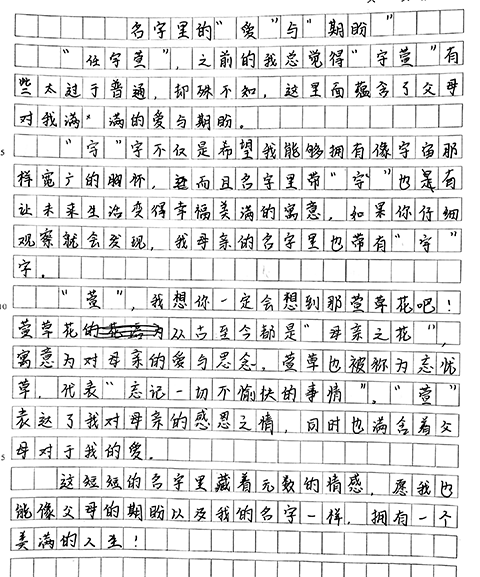 名字里的“爱”与“期盼”
“任宇萱”，之前的我总觉得“宇萱”有
些太过于普通，却殊不知，这里面蕴含了父母
对我满满的爱与期盼。
5
“宇”字不仅是希望我能够拥有像宇宙那
样宽广的胸怀，而且名字里带“宇”也是有
让未来生活变得幸福美满的寓意，如果你仔细
观察就会发现，我母亲的名字里也带有“宇”
字。
10
“萱”，我想你一定会想到那萱草花吧！
萱草花从古至今都是“母亲之花”，
寓意为对母亲的爱与思念。萱草也被称为忘忧
草，代表“忘记一切不愉快的事情”。“萱”
表达了我对母亲的感恩之情，同时也满含着父
5
母对于我的爱。
这短短的名字里藏着无数的情感，愿我也
能像父母的期盼以及我的名字一样，拥有一个
美满的人生！